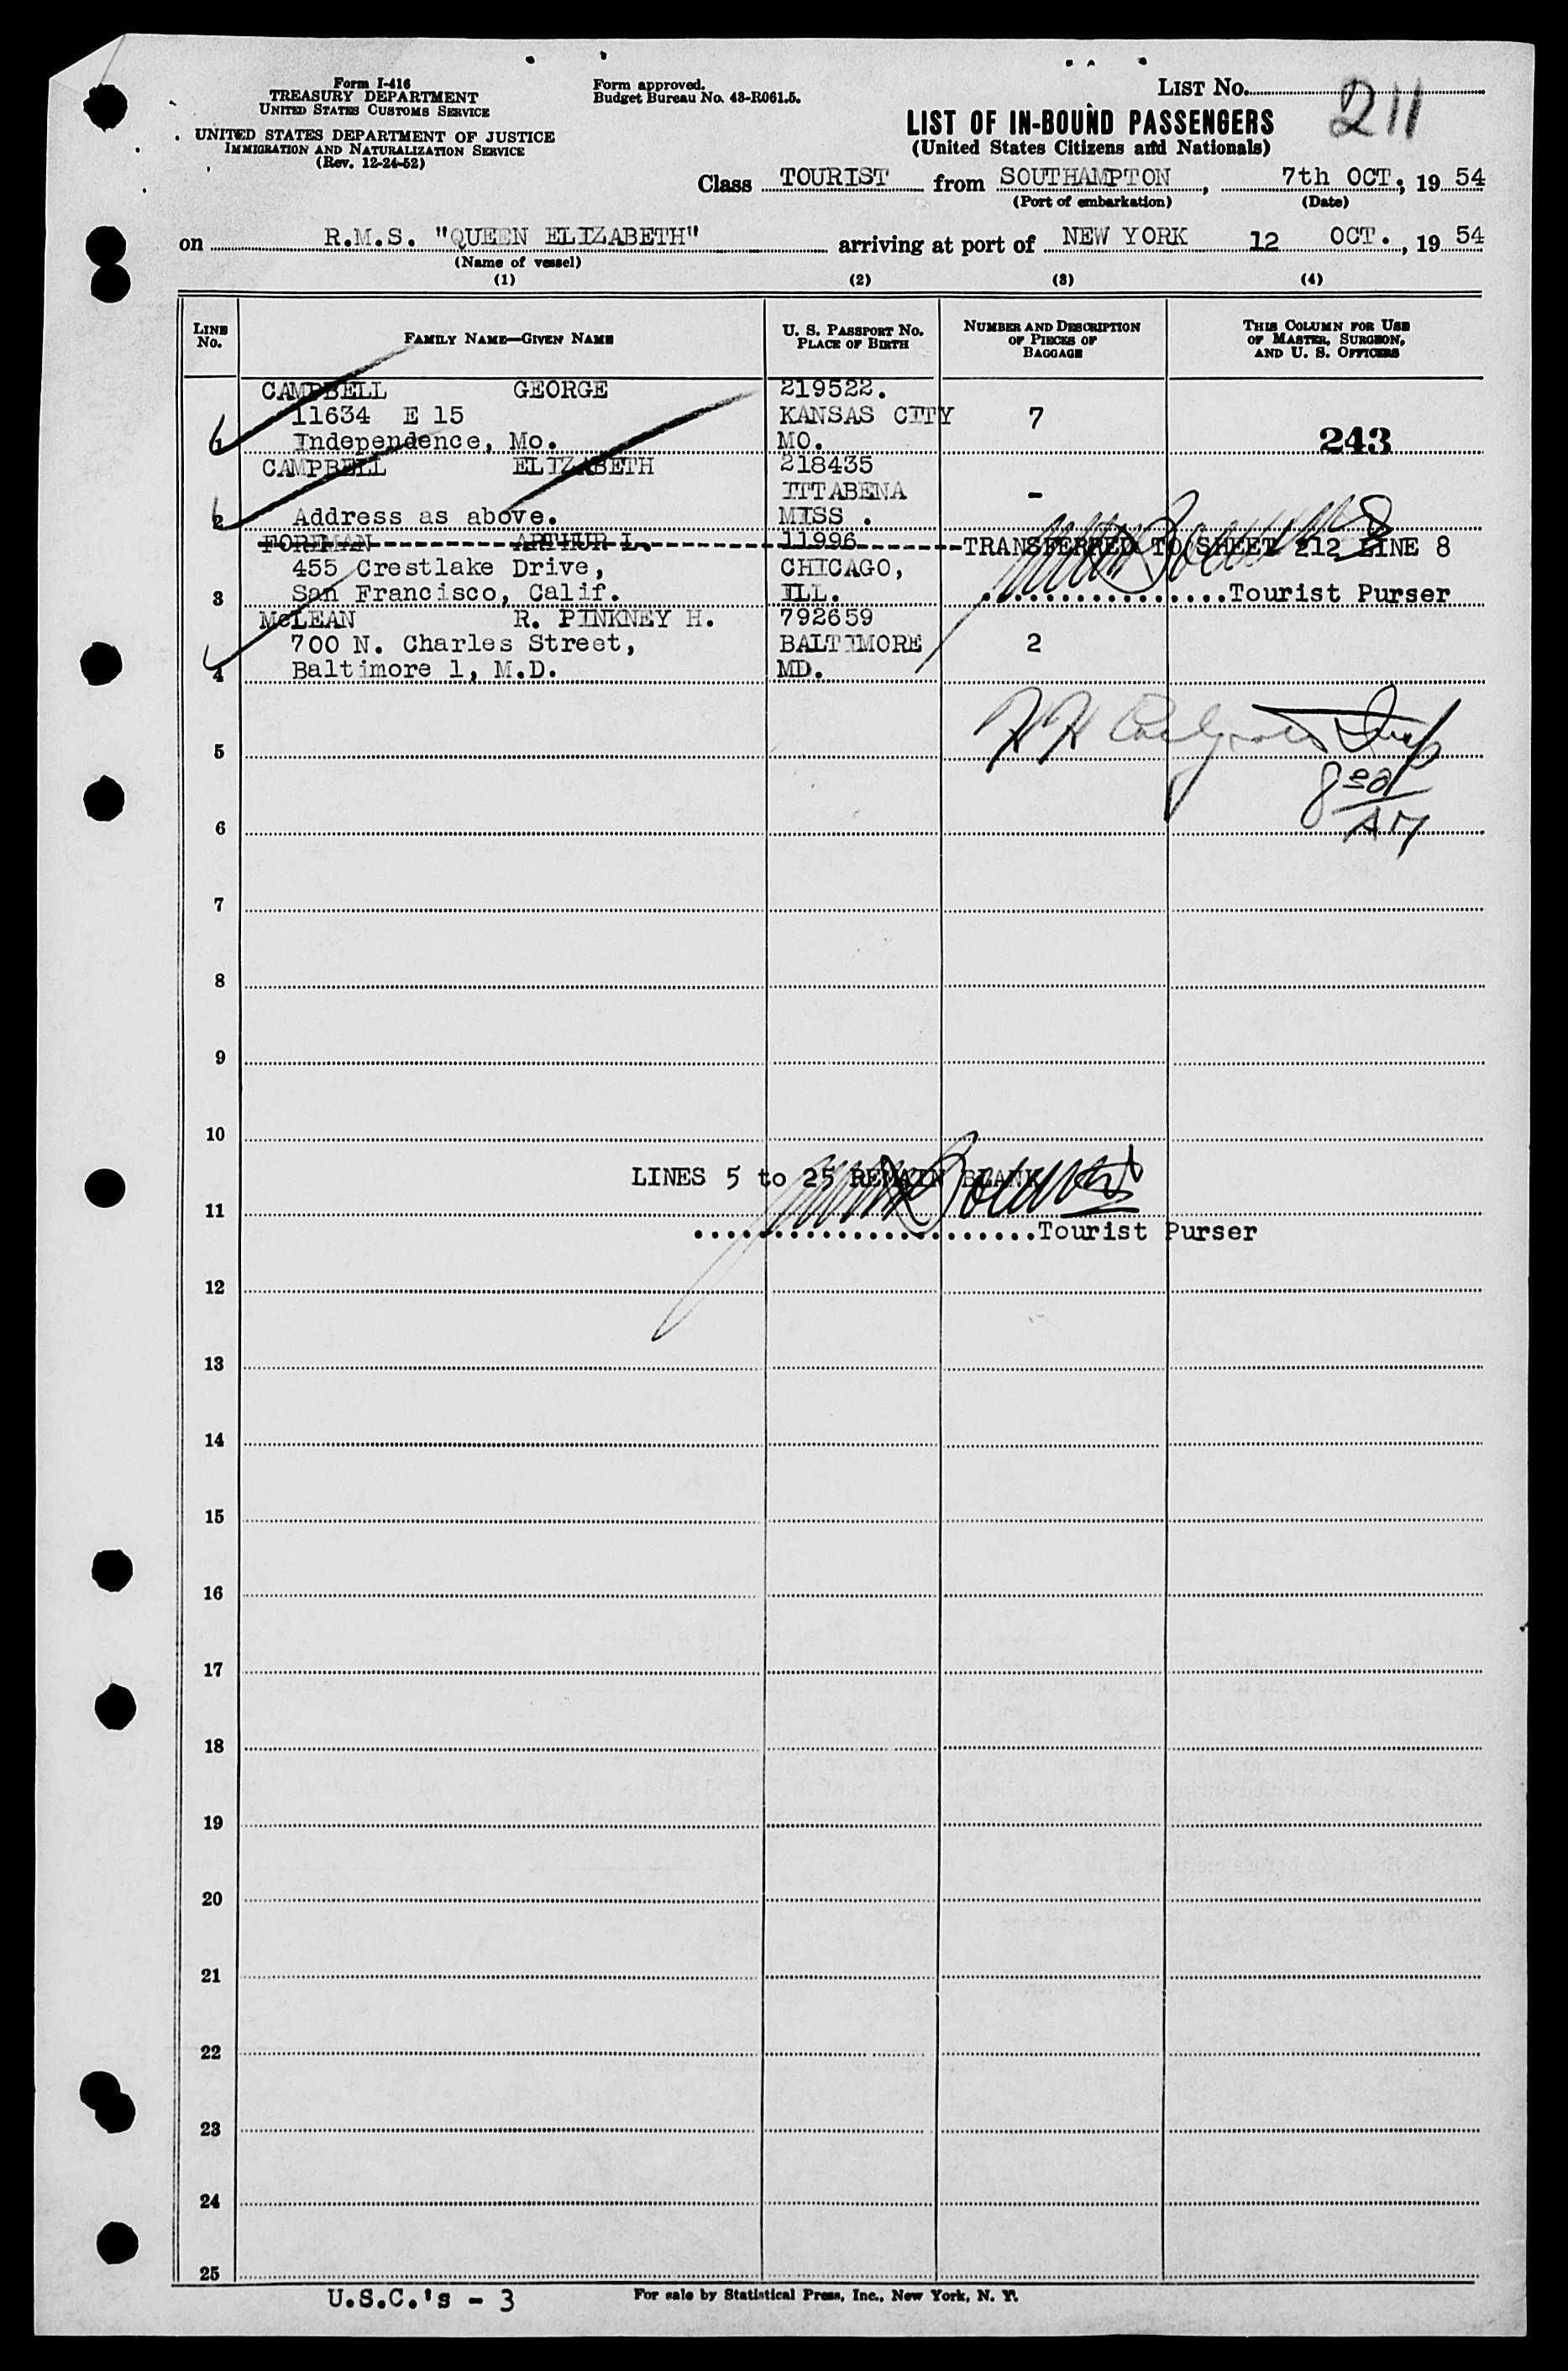 Form I-416
TREASURY DEPARTMENT
UNITED STATES CUSTOMS SERVICE
UNITED STATES DEPARTMENT OF JUSTICE
IMMIGRATION AND NATURALIZATION SERVICE
(Rev. 12-24-52)
Form approved.
Budget Bureau No. 43-R061.5.
LIST No. 211
LIST OF IN-BOUND PASSENGERS
(United States Citizens and Nationals)
Class TOURIST from SOUTHAMPTON, 7th OCT., 19 54
(Port of embarkation) (Date)
on R.M.S. "QUEEN ELIZABETH" arriving at port of NEW YORK 12 OCT., 19 54
(Name of vessel)
(1) (2) (3) (4)
LINE No. FAMILY NAME—GIVEN NAME U. S. PASSPORT No. PLACE OF BIRTH NUMBER AND DESCRIPTION OF PIECES OF BAGGAGE THIS COLUMN FOR USE OF MASTER, SURGEON, AND U. S. OFFICERS
CAMPBELL GEORGE 219522.
11634 E 15 KANSAS CITY 7
1 Independence, Mo. MO. 243
CAMPBELL ELIZABETH 218435
ITTABENA -
2 Address as above. MISS .
FOREMAN ARTHUR L. 11996 TRANSFERRED TO SHEET 212 LINE 8
455 Crestlake Drive, CHICAGO,
3 San Francisco, Calif. ILL. Tourist Purser
McLEAN R. PINKNEY H. 792659
700 N. Charles Street, BALTIMORE 2
4 Baltimore 1, M.D. MD.
5
6
AM
7
8
9
10
LINES 5 to 25 REMAIN BLANK
11
Tourist Purser
12
13
14
15
16
17
18
19
20
21
22
23
24
25
U.S.C.'s - 3 For sale by Statistical Press, Inc., New York, N. Y.